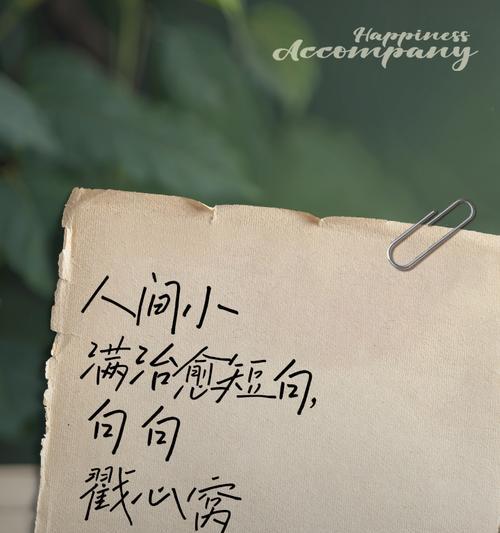 Happiness
Accompany
人间小
满治愈短句,
句句
戳心窝